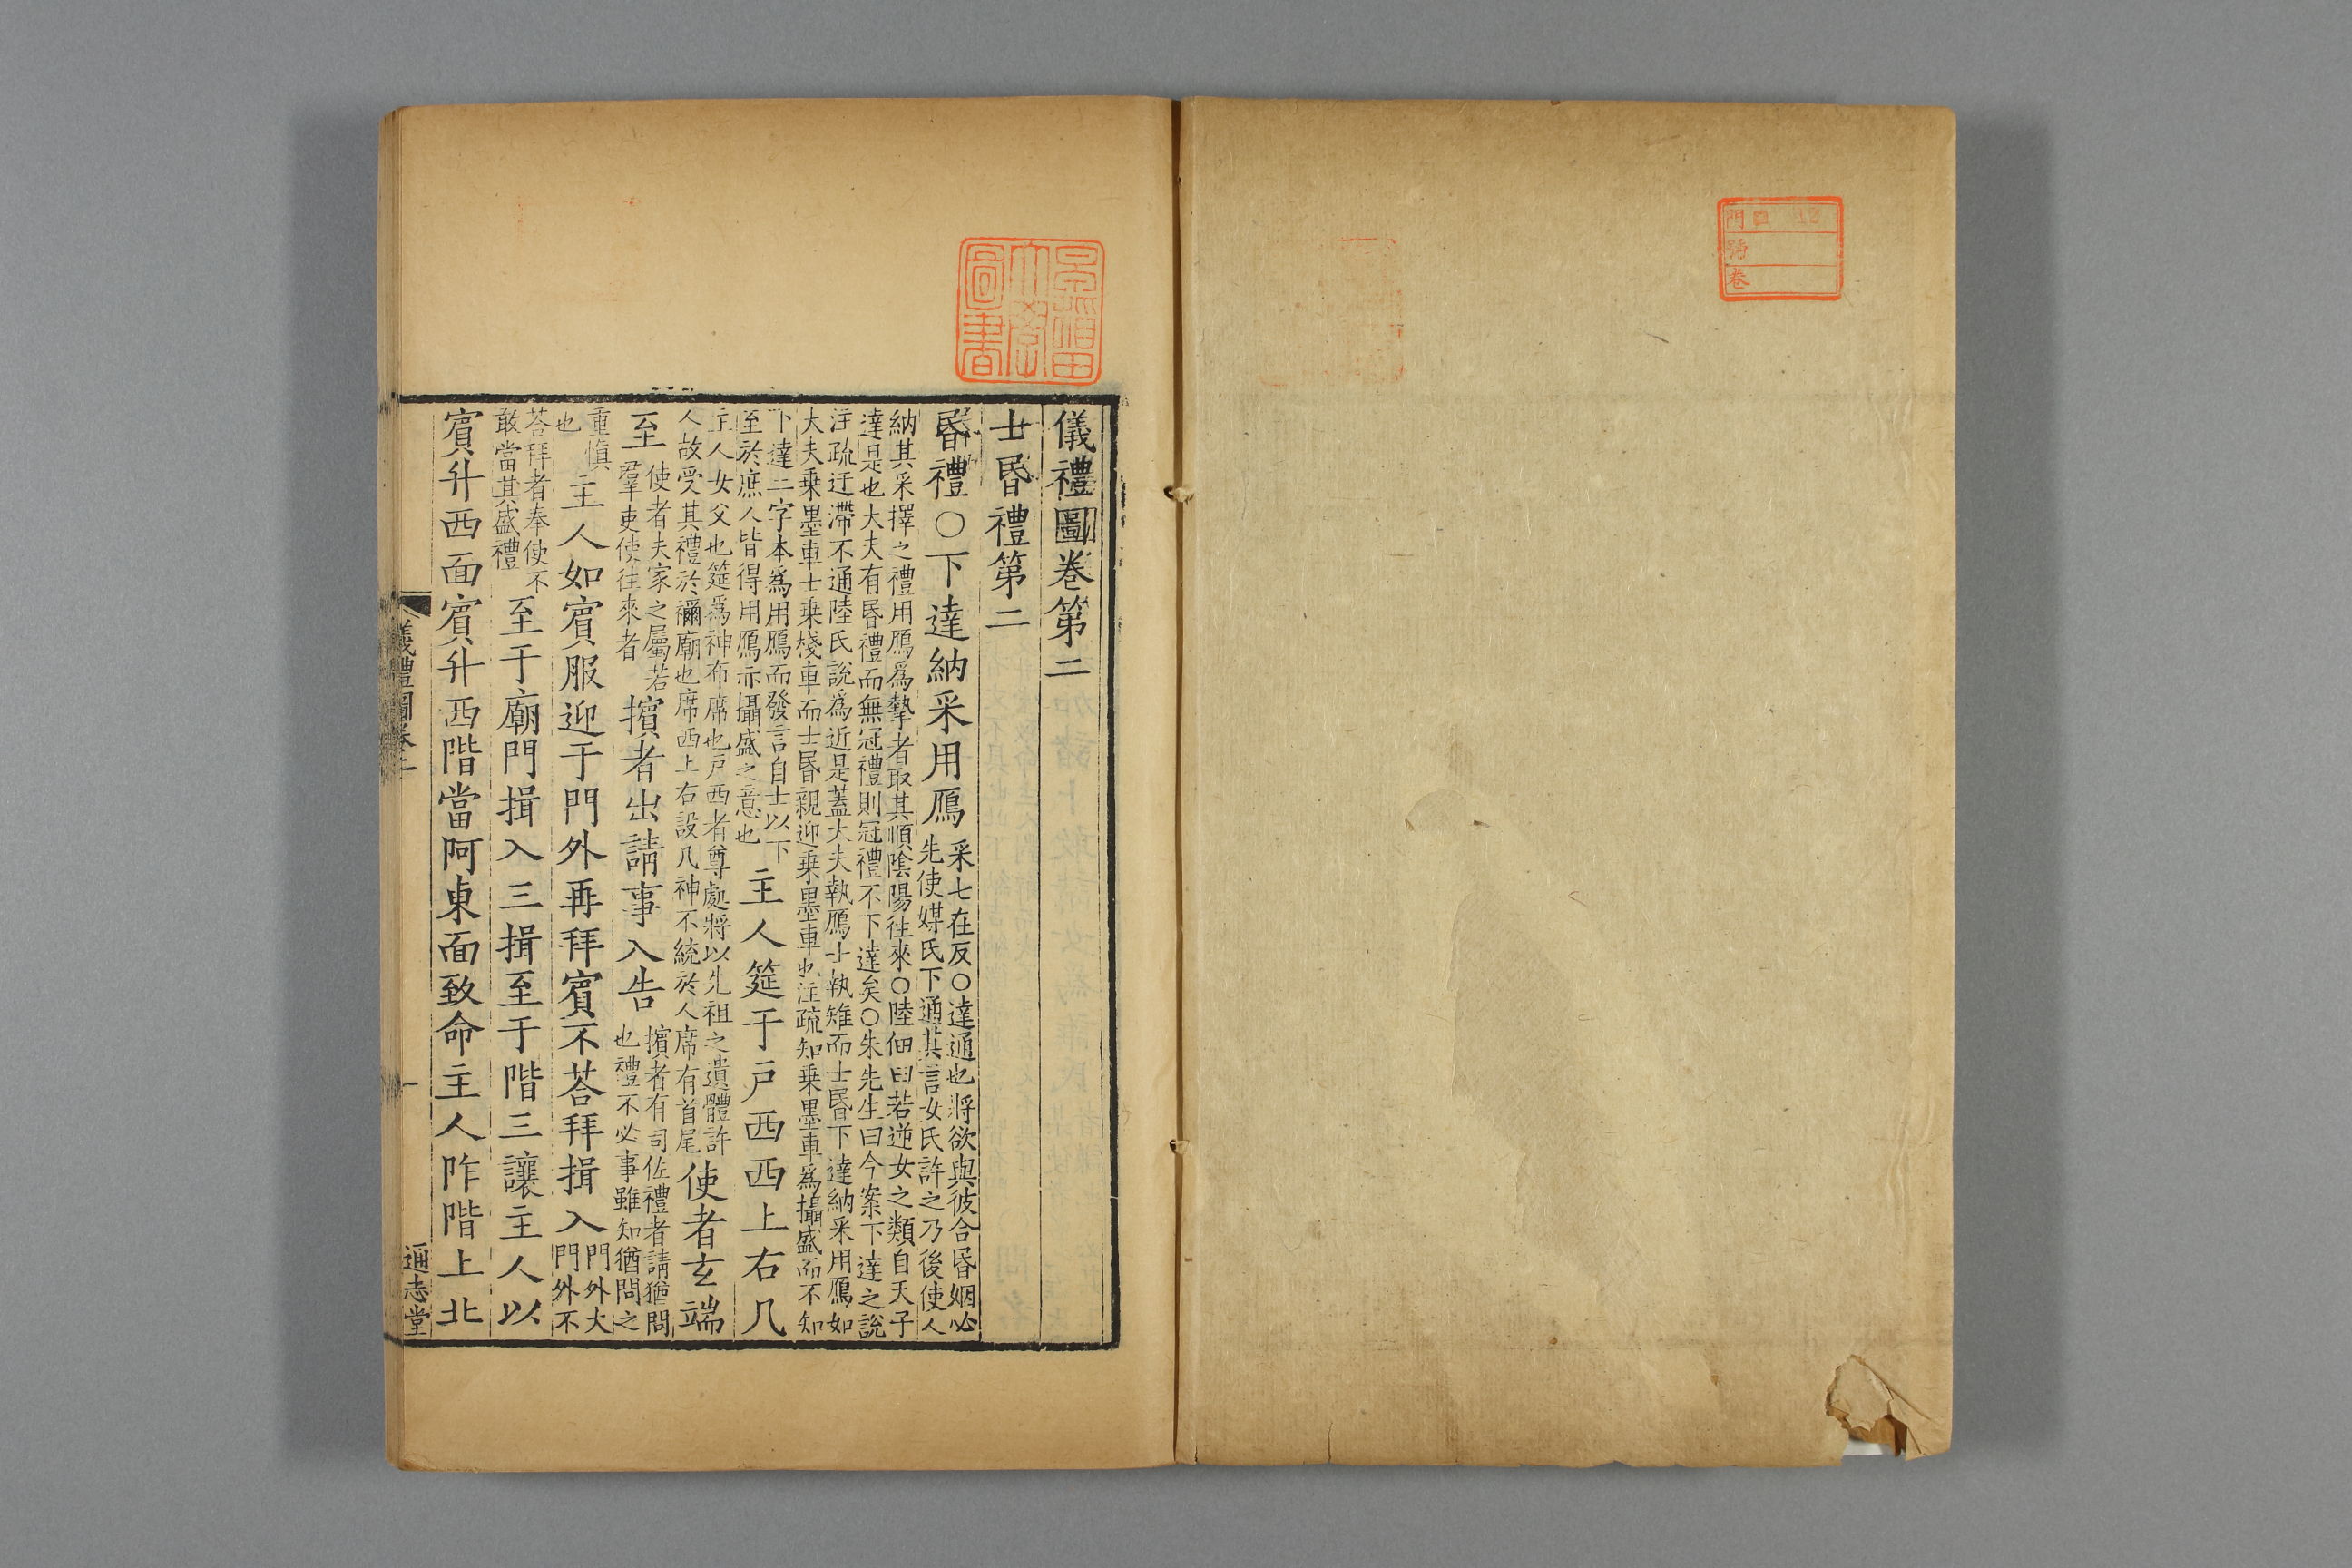 門 ロ 12
號
卷
早稲田
大學
圖書
儀禮圖卷第二
士昏禮第二
昏禮○下達納采用鴈
采七在反○達通也將欲與彼合昏姻必
先使媒氏下通其言女氏許之乃後使人
納其采擇之禮用鴈爲摯者取其順陰陽往來○陸佃曰若逆女之類自天子
達是也大夫有昏禮而無冠禮則冠禮不下達矣○朱先生曰今案下達之說
注疏迂滯不通陸氏說爲近是蓋大夫執鴈士執雉而士昏下達納采用鴈如
大夫乗墨車士乗棧車而士昏親迎乗墨車也注疏知乗墨車爲攝盛而不知
下達二字本爲用鴈而發言自士以下
至於庶人皆得用鴈亦攝盛之意也
主人筵于戸西西上右几
主人女父也筵爲神布席也戸西者尊處將以先祖之遺體許
人故受其禮於禰廟也席西上右設几神不統於人席有首尾
使者玄端
至
使者夫家之屬若
羣吏使往來者
擯者出請事入告
擯者有司佐禮者請猶問
也禮不必事雖知猶問之
重慎
也
主人如賔服迎于門外再拜賔不荅拜揖入
門外大
門外不
荅拜者奉使不
敢當其盛禮
至于廟門揖入三揖至于階三讓主人以
賔升西面賔升西階當阿東面致命主人阼階上北
儀禮圖卷二
一
通志堂